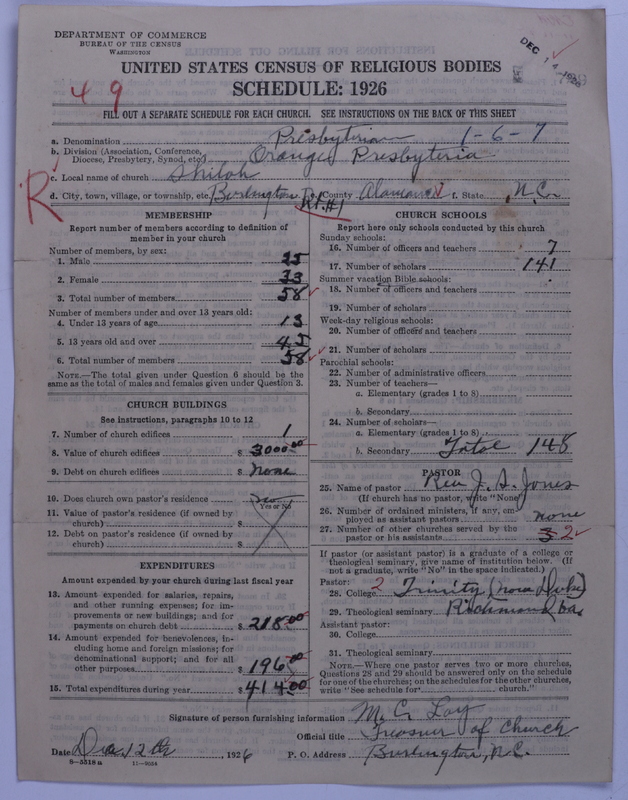 DEPARTMENT OF COMMERCE
BUREAU OF THE CENSUS
WASHINGTON
DEC 14 1926
UNITED STATES CENSUS OF RELIGIOUS BODIES
SCHEDULE: 1926
49
FILL OUT A SEPARATE SCHEDULE FOR EACH CHURCH. SEE INSTRUCTIONS ON THE BACK OF THIS SHEET
a. Denomination Presbyterian 1-6-7
b. Division (Association, Conference, Diocese, Presbytery, Synod, etc.) Orange Presbyteria
c. Local name of church Shiloh
R
d. City, town, village, or township, etc. Burlington Rt.#1 e. County Alamance f. State N.C.
MEMBERSHIP
Report number of members according to definition of
member in your church
Number of members, by sex:
1. Male 25
2. Female 33
3. Total number of members 58
Number of members under and over 13 years old:
4. Under 13 years of age 13
5. 13 years old and over 45
6. Total number of members 58
NOTE.—The total given under Question 6 should be the
same as the total of males and females given under Question 3.
CHURCH BUILDINGS
See instructions, paragraphs 10 to 12
7. Number of church edifices 1
8. Value of church edifices $ 3000.00
9. Debt on church edifices $ none
10. Does church own pastor's residence no
Yes or No
11. Value of pastor's residence (if owned by
church) $
12. Debt on pastor's residence (if owned by
church) $
EXPENDITURES
Amount expended by your church during last fiscal year
13. Amount expended for salaries, repairs,
and other running expenses; for im-
provements or new buildings; and for
payments on church debt $ 218.00
14. Amount expended for benevolences, in-
cluding home and foreign missions; for
denominational support; and for all
other purposes $ 196.00
15. Total expenditures during year $ 414.00
CHURCH SCHOOLS
Report here only schools conducted by this church
Sunday schools:
16. Number of officers and teachers 7
17. Number of scholars 141
Summer vacation Bible schools:
18. Number of officers and teachers
19. Number of scholars
Week-day religious schools:
20. Number of officers and teachers
21. Number of scholars
Parochial schools:
22. Number of administrative officers
23. Number of teachers—
a. Elementary (grades 1 to 8)
b. Secondary
24. Number of scholars—
a. Elementary (grades 1 to 8)
b. Secondary Total 148
PASTOR
25. Name of pastor Rev J. S. Jones
(If church has no pastor, write "None")
26. Number of ordained ministers, if any, em-
ployed as assistant pastors none
27. Number of other churches served by the
pastor or his assistants 3 2
If pastor (or assistant pastor) is a graduate of a college or
theological seminary, give name of institution below. (If
not a graduate, write "No" in the space indicated.)
Pastor:
28. College 2 Trinity (now Duke)
29. Theological seminary Richmond, Va
Assistant pastor:
30. College
31. Theological seminary
NOTE.—Where one pastor serves two or more churches,
Questions 28 and 29 should be answered only on the schedule
for one of the churches; on the schedules for the other churches,
write "See schedule for church."
Signature of person furnishing information M. C. Loy
Official title Treasurer of Church
Date Dec. 12th, 1926 P. O. Address Burlington, N.C.
8-5518 a 11-9584